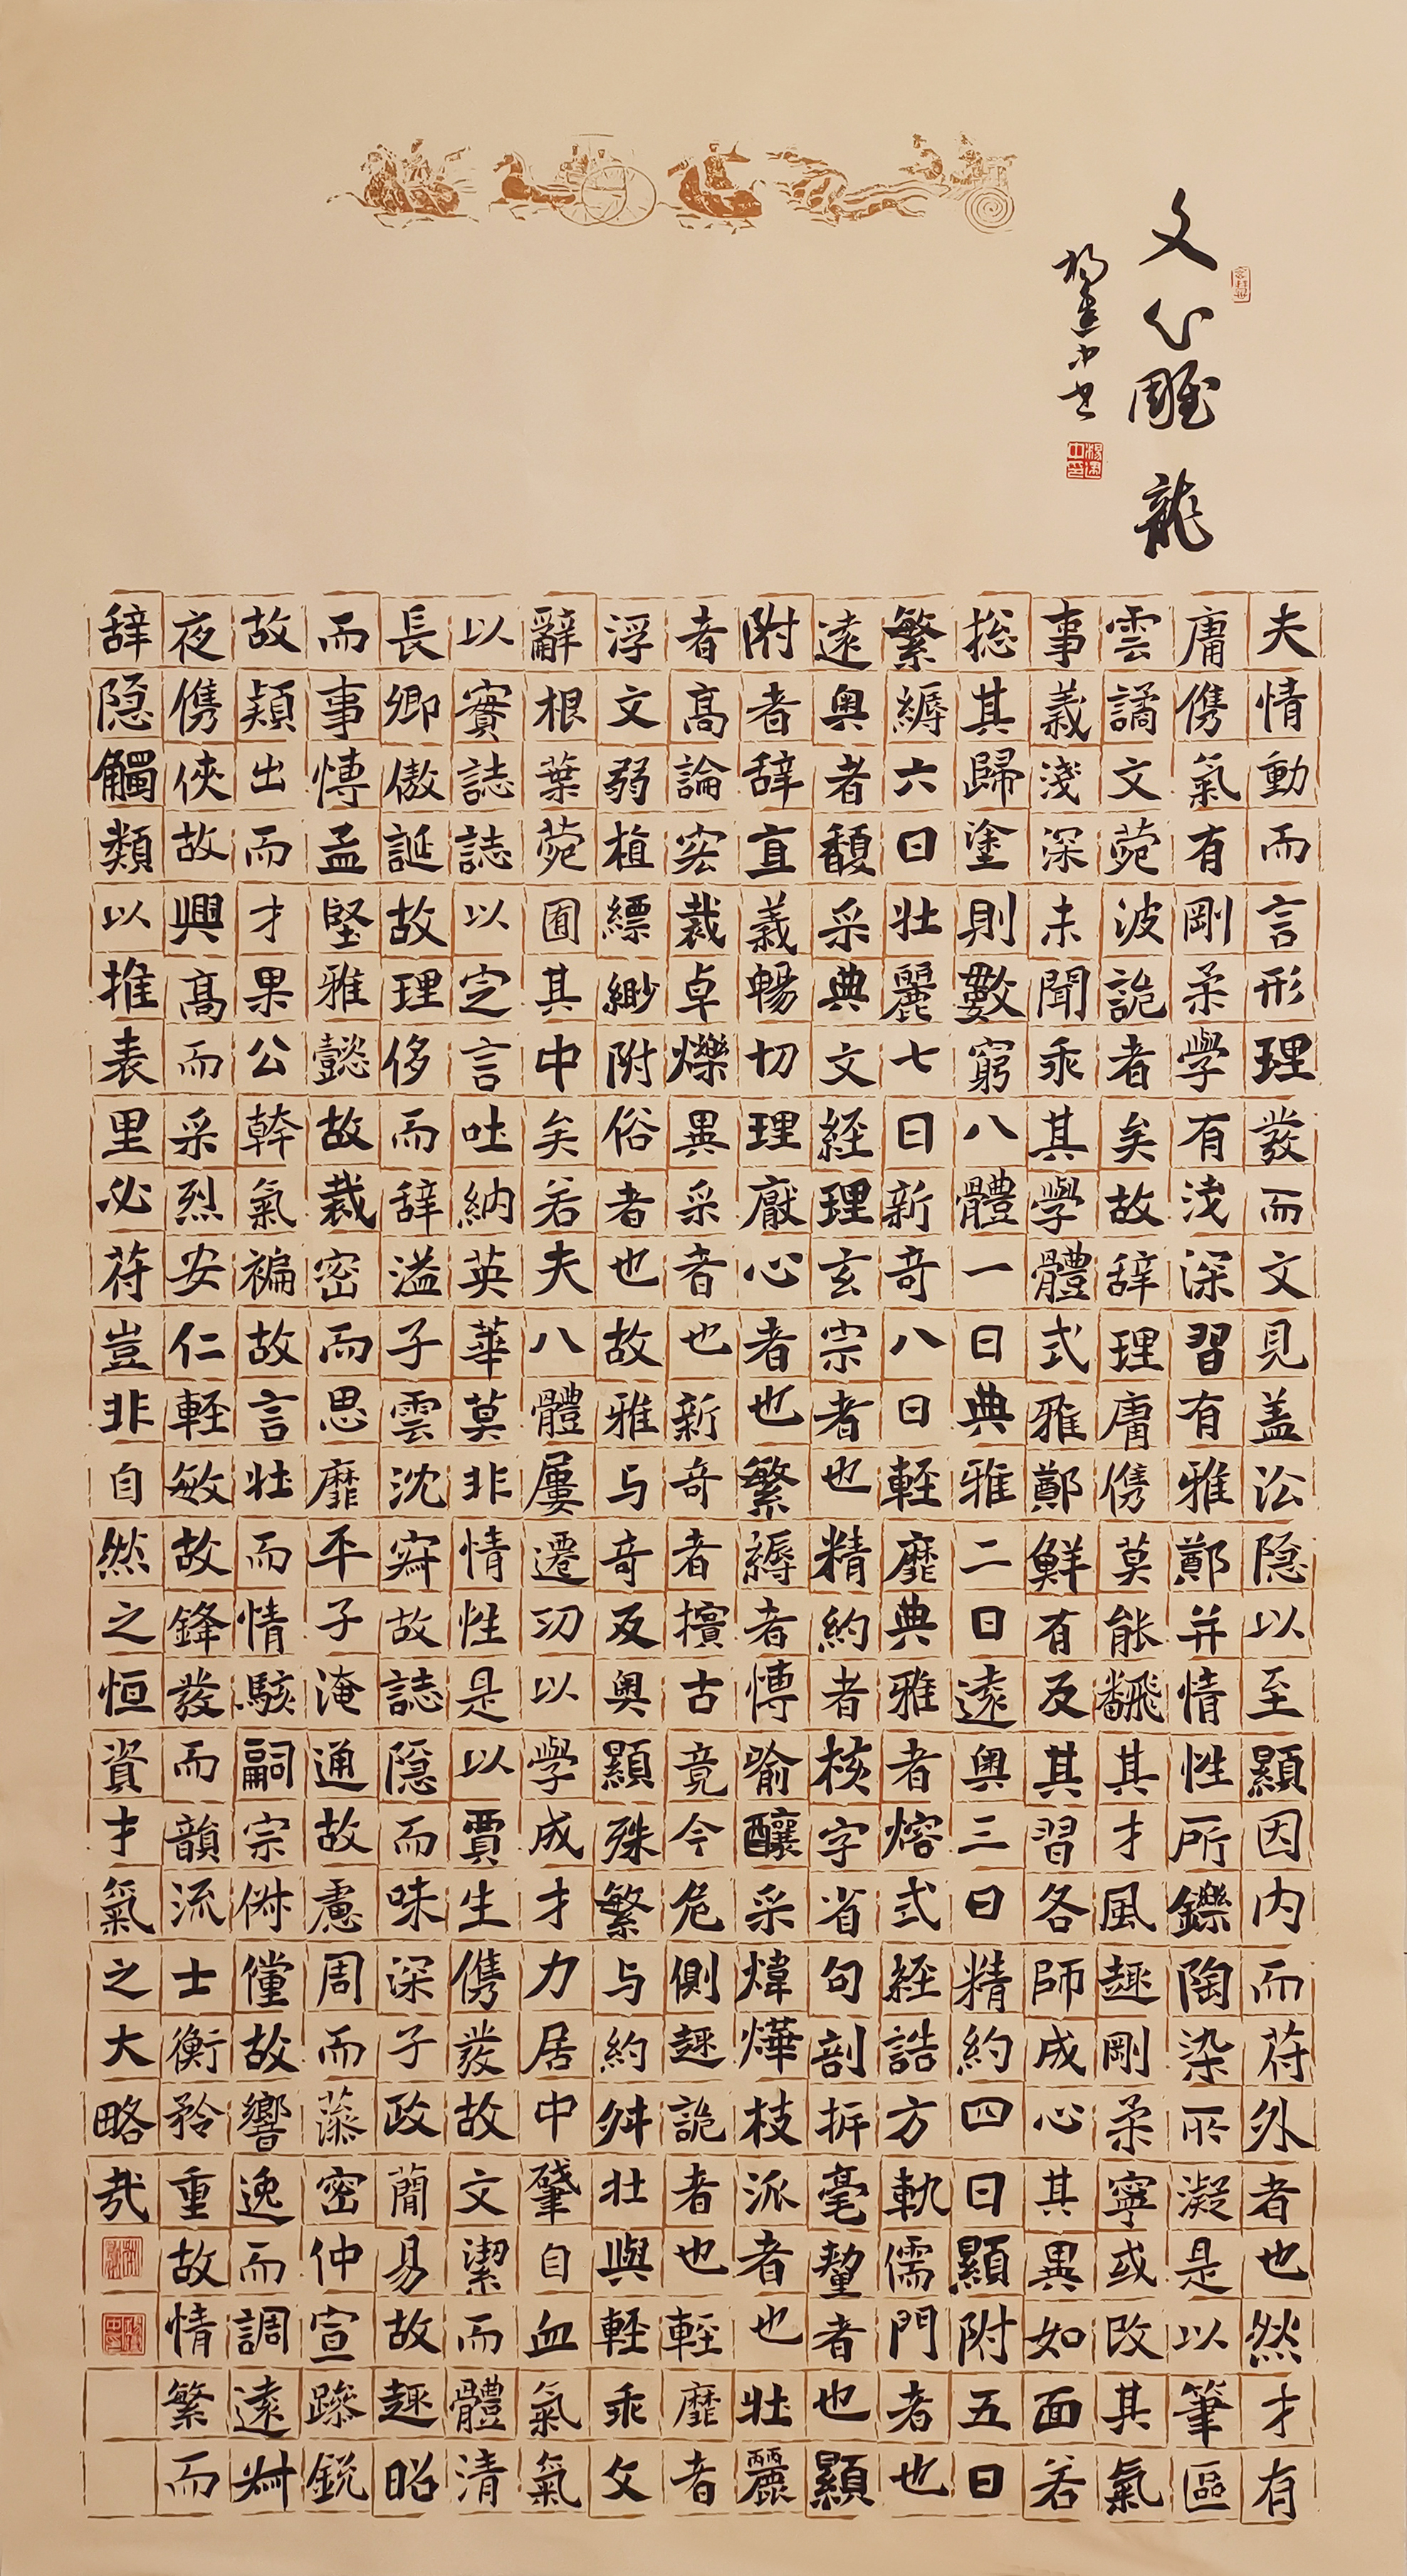 文心雕龍
楊建中书
夫情動而言形理發而文見盖㳂隐以至顯因内而苻外者也然才有
庸儁氣有剛柔學有浅深習有雅鄭并情性所鑠陶染所凝是以筆區
雲譎文苑波詭者矣故辞理庸儁莫能翻其才風趣剛柔寧或改其氣
事義淺深未聞乖其學體式雅鄭鮮有反其習各師成心其異如面若
捴其歸塗則數窮八體一曰典雅二曰遠奥三曰精約四曰顯附五曰
繁縟六曰壮麗七曰新奇八曰輕靡典雅者熔式經誥方軌儒門者也
遠奥者馥采典文経理玄宗者也精約者核字省句剖析毫釐者也顯
附者辞直義暢切理厭心者也繁縟者博喻釀采煒燁枝派者也壯麗
者高論宏裁卓爍異采者也新奇者擯古竞今危側趣詭者也輕靡者
浮文弱植縹緲附俗者也故雅与奇反奥顯殊繁与約舛壮與輕乖文
辭根葉苑囿其中矣若夫八體屢遷功以學成才力居中肇自血氣氣
以實誌誌以定言吐納英華莫非情性是以賈生儁發故文潔而體清
長卿傲誕故理侈而辞溢子雲沈寂故誌隐而味深子政簡易故趣昭
而事博孟堅雅懿故裁密而思靡平子淹通故慮周而藻密仲宣躁鋭
故穎出而才果公幹氣褊故言壮而情駭嗣宗俶儻故響逸而調遠叔
夜儁俠故興高而采烈安仁輕敏故鋒發而韻流士衡矜重故情繁而
辞隐觸類以推表里必苻豈非自然之恒資才氣之大略哉